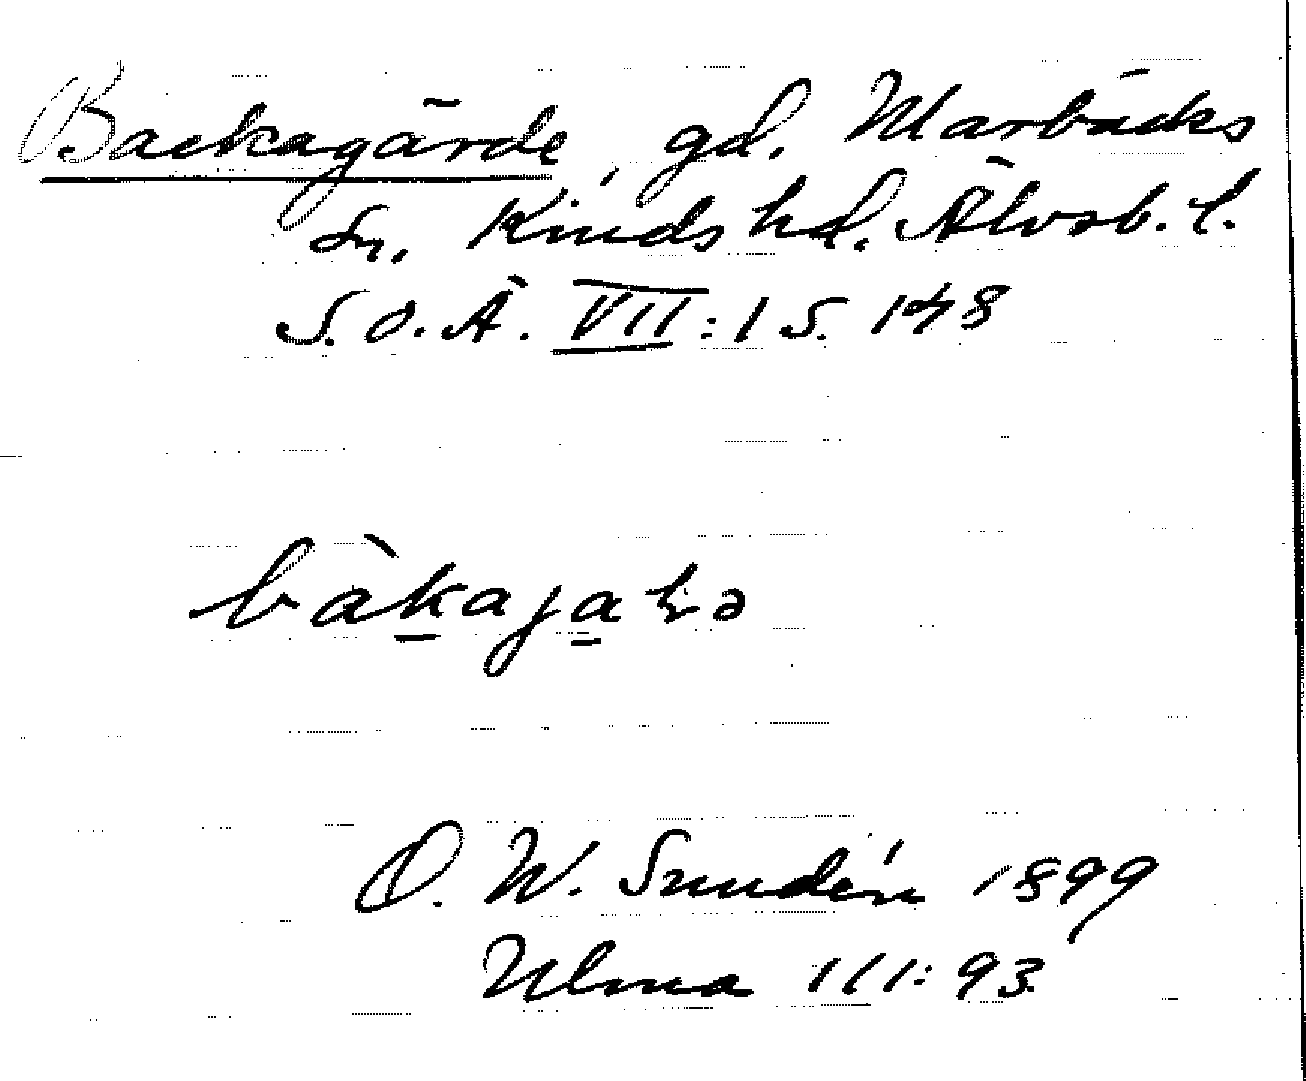 Backagärde, gd. Marbäcks
sn. Kinds hd. Älvsb. l.
S. O. Ä. VII: 1 S. 148
bàkaja
O. W. Sundén 1899
Ulma 111: 93.